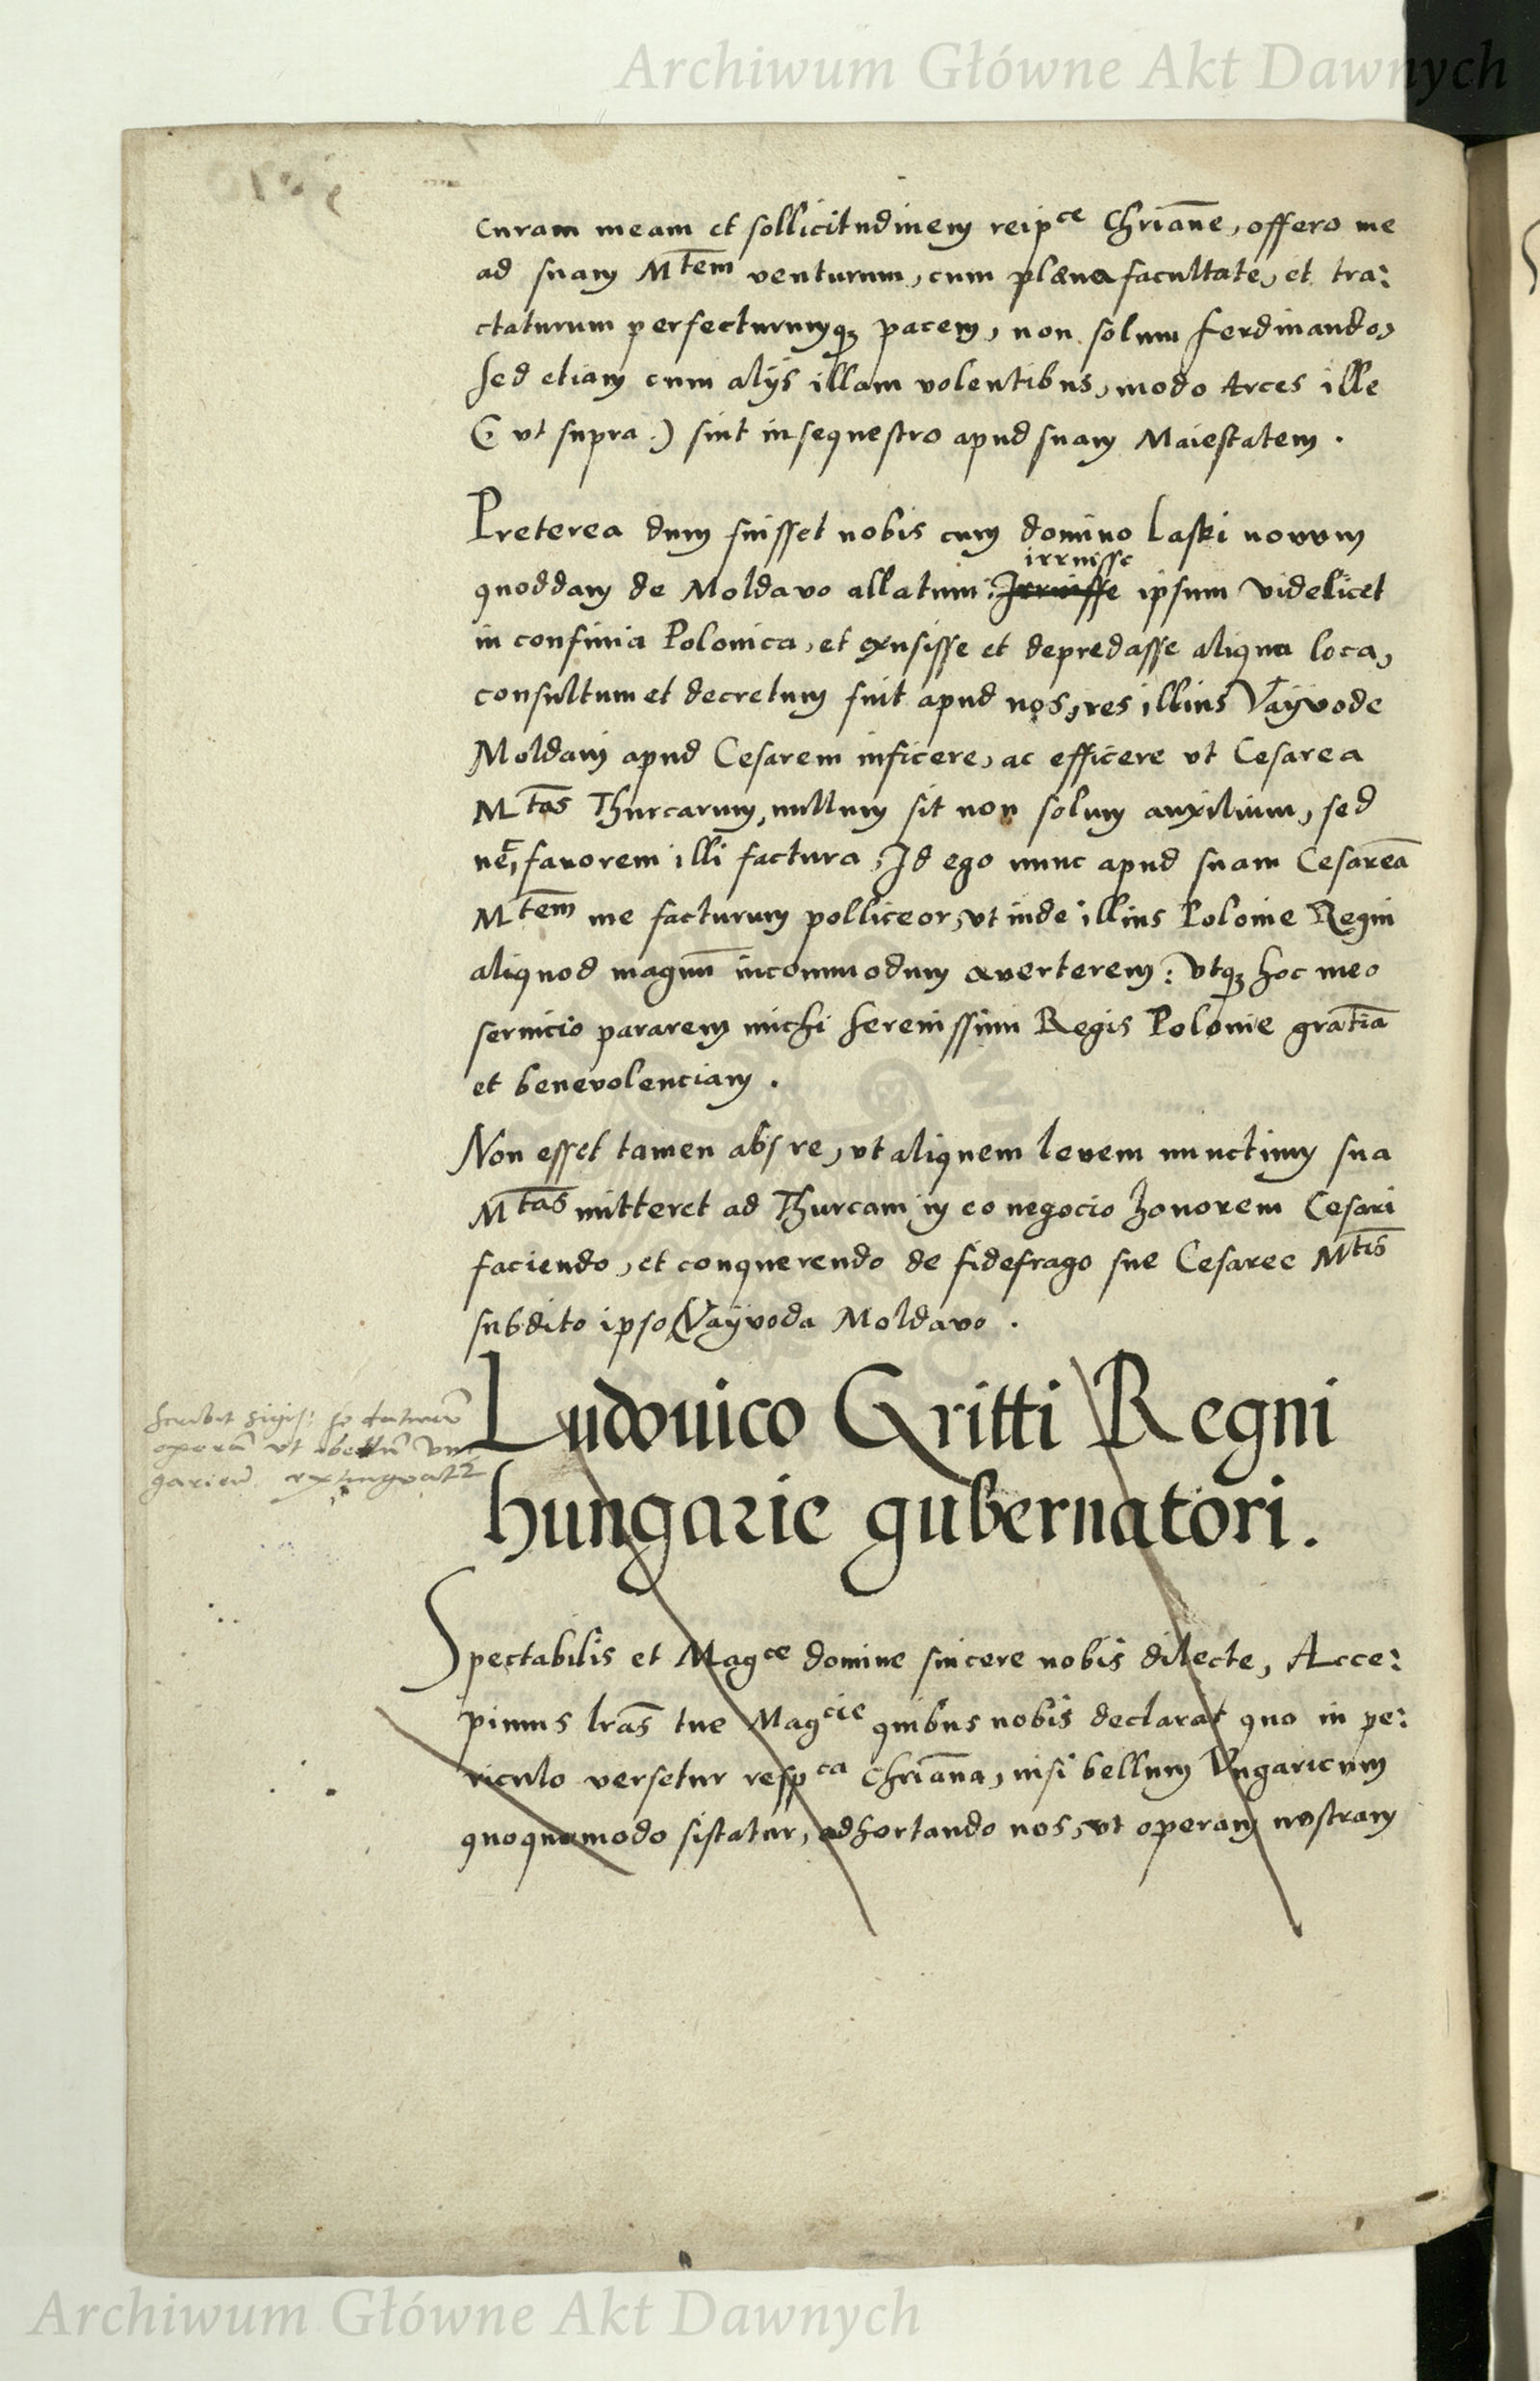 Archiwum Główne Akt Dawnych
curam meam et sollicitudinem reip^ce Chriãne, offero me
ad suam M^tem venturum, cum plæna facultate, et tra:
ctaturum perfecturumqꝫ pacem, non solum ferdinando,
sed etiam cum alijs illam volentibus, modo Arces ille
(: vt supra .) sint in sequestro apud suam Maiestatem .
Preterea dum fuisset nobis cum domino Laski novum
irruisse
quoddam de Moldavo allatum: Irruisse ipsum videlicet
in confinia Polonica, et exusisse et depredasse aliqua loca,
consultum et decretum fuit apud nos, res illius Vaÿvode
Moldavi apud Cesarem inficere, ac efficere vt Cesarea
M^tas Thurcarum, nullum sit non solum auxilium, sed
nec, favorem illi factura, Id ego nunc apud suam Cesareã
M^tem me facturum polliceor, vt inde illius Polonie Regni
aliquod magnũ incommodum averterem: Vtqꝫ hoc meo
servicio pararem michi serenissimi Regis Polonie gratiã
et benevolenciam .
Non esset tamen abs re, vt aliquem levem nunctium sua
M^tas mitteret ad Thurcam in eo negocio honorem Cesari
faciendo, et conquerendo de fidefrago sue Cesaree M^tis
subdito ipso Vaÿvoda Moldavo .
Scribit Sigis: se daturũ
operã vt bellũ Vn
garicũ extinguatr
Ludouico Gritti Regni
hungarie gubernatori.
Spectabilis et Mag^ce domine sincere nobis dilecte, Acce:
pimus lrãs tue Mag^cie quibus nobis declarat quo in pe:
riculo versetur resp^ca Chriãna, nisi bellum Vngaricum
quoquomodo sistatur, adhortando nos, vt operam nostram
Archiwum Główne Akt Dawnych